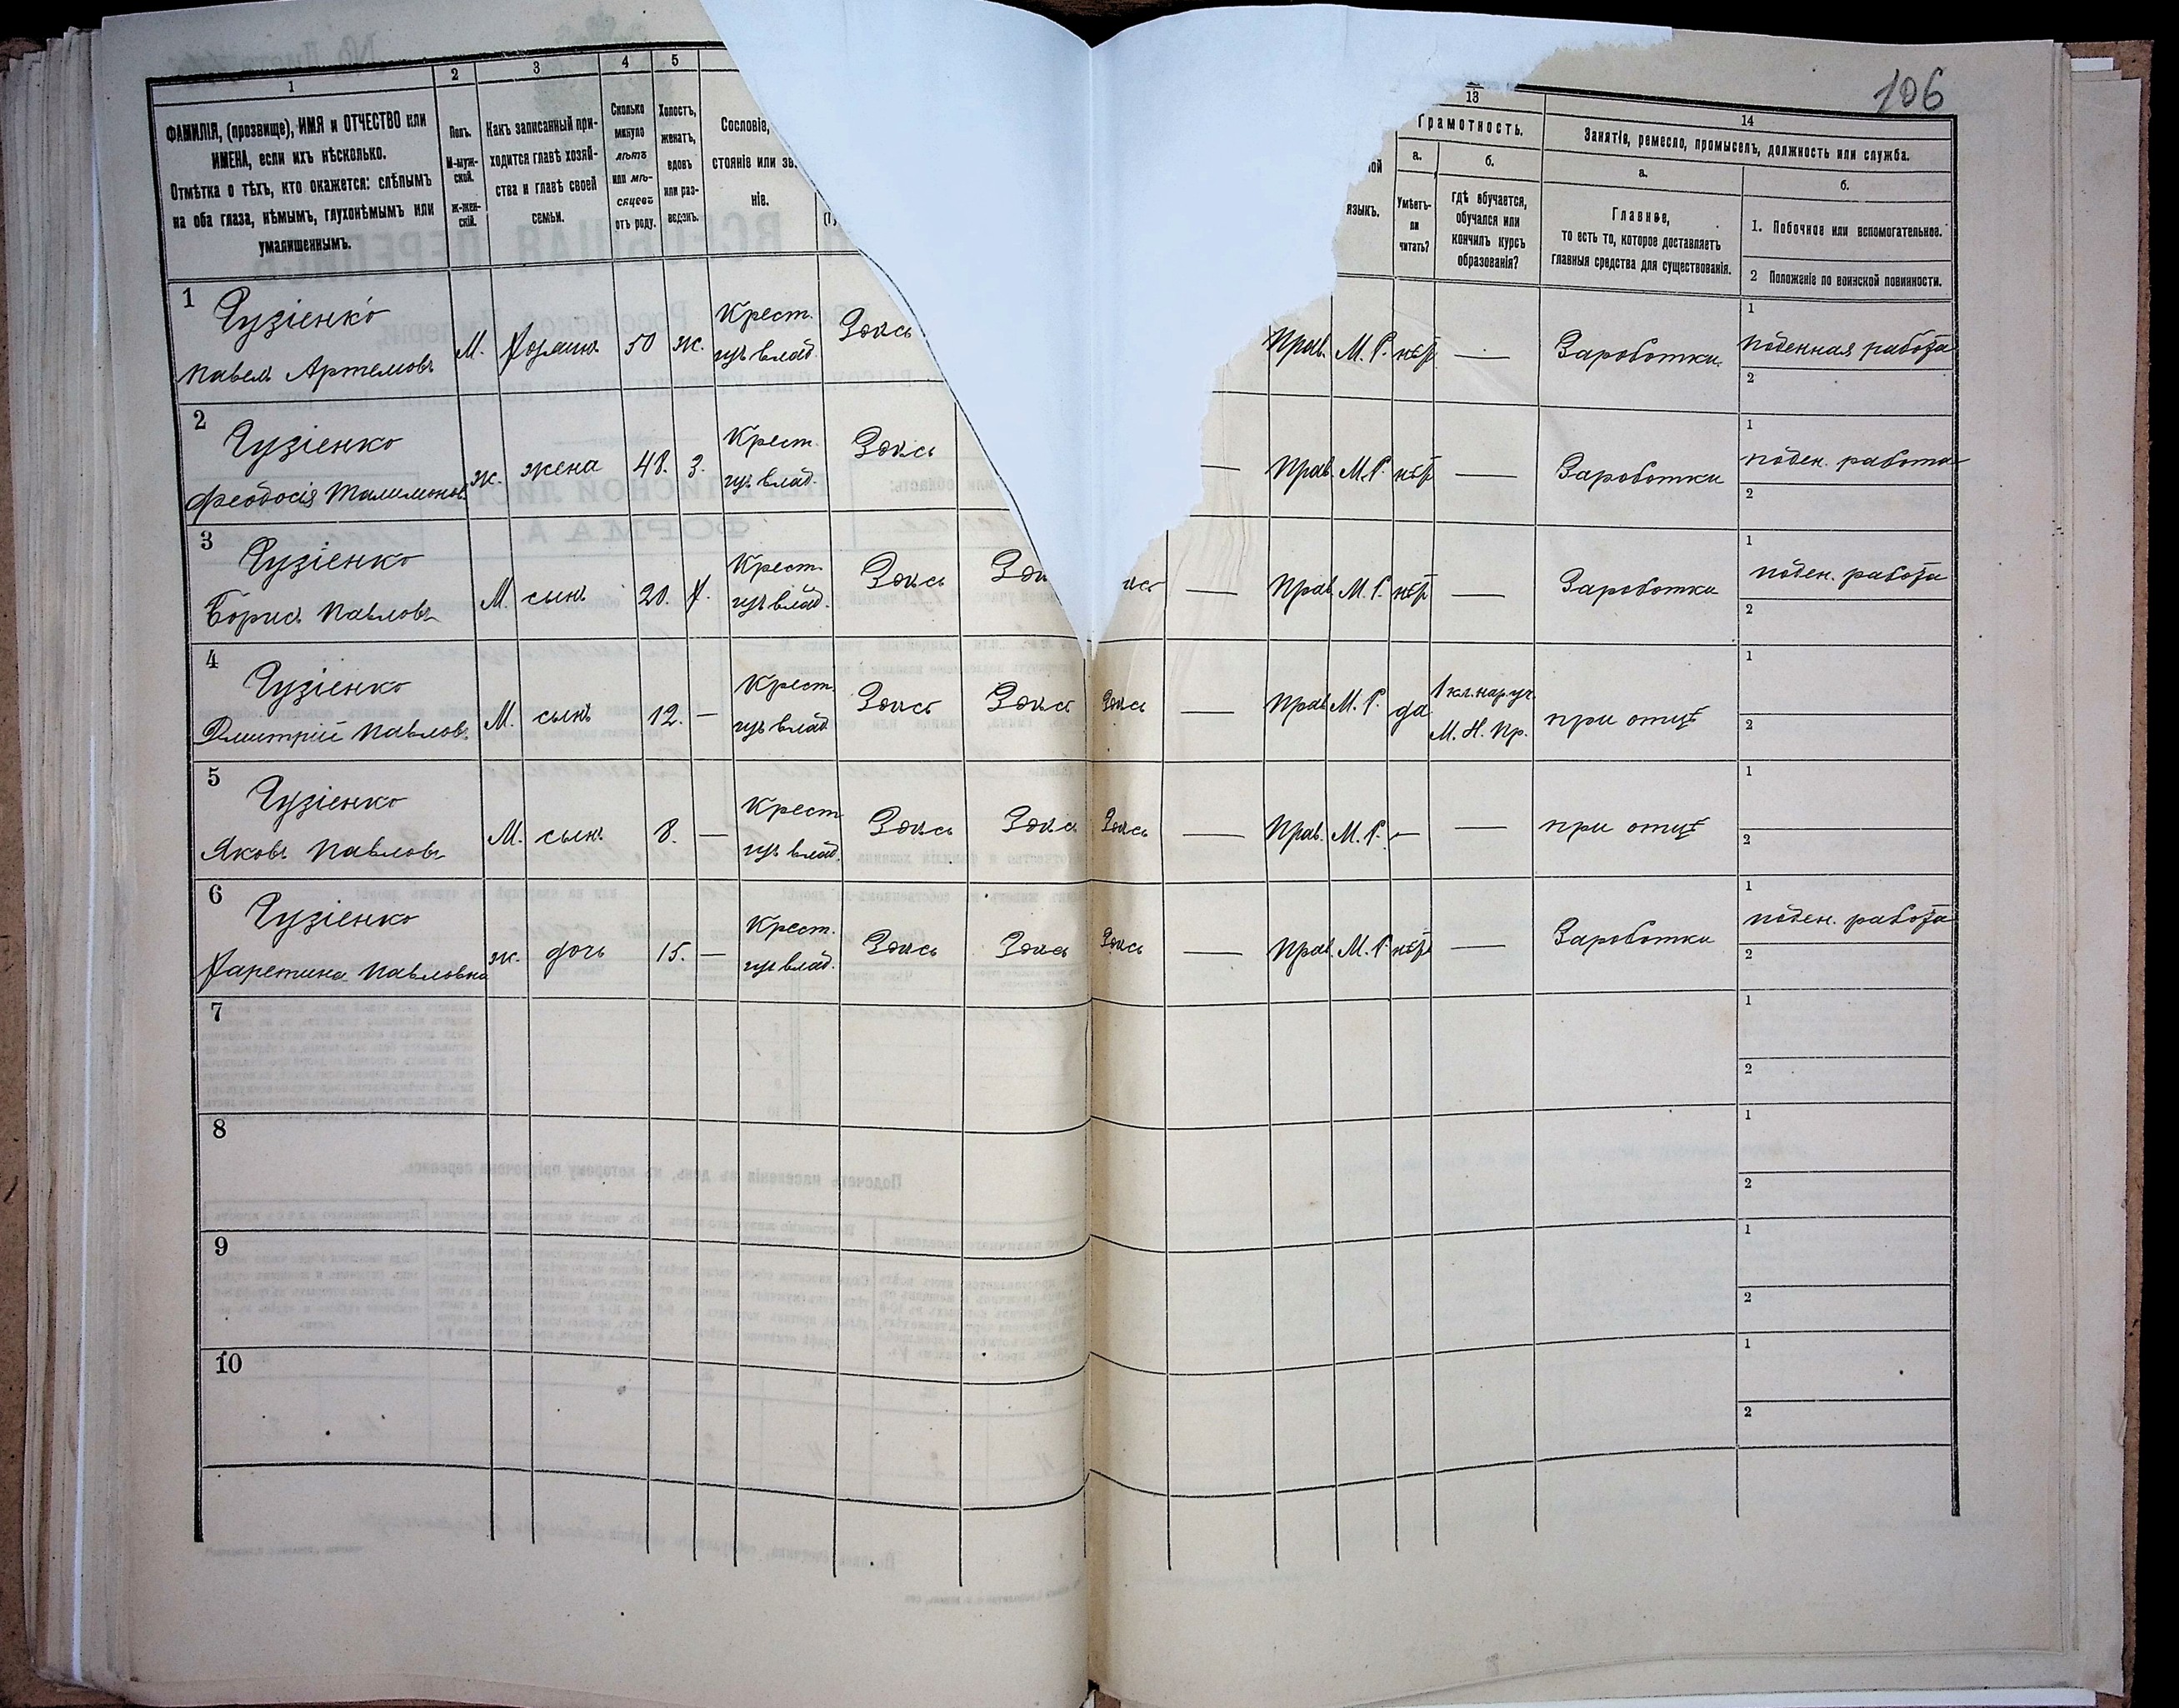 106
1
2
3
4
5
13
14
ФАМИЛІЯ, (прозвище), ИМЯ и ОТЧЕСТВО или
ИМЕНА, если ихъ нѣсколько.
Отмѣтка о тѣхъ, кто окажется: слѣпымъ
на оба глаза, нѣмымъ, глухонѣмымъ или
умалишеннымъ.
Полъ.
М-муж-
ской.
ж-жен-
скій.
Какъ записанный при-
ходится главѣ хозяй-
ства и главѣ своей
семьи.
Сколько
минуло
лѣтъ
или мѣ-
сяцевъ
отъ роду.
Холостъ,
женатъ,
вдовъ
или раз-
веденъ.
Сословіе,
стояніе или зв
ніе.
ной
языкъ.
Грамотность.
а.
Умѣетъ-
ли
читать?
б.
гдѣ обучается,
обучался или
кончилъ курсъ
образованія?
Занятія, ремесло, промыселъ, должность или служба.
а.
Главное,
то есть то, которое доставляетъ
главныя средства для существованія.
б.
1. Побочное или вспомогательное.
2 Положеніе по воинской повинности.
1
Гузіенко
Павелъ Артемовъ
М. Хозяинъ 50 ж. Крест. Здѣсь Прав. М. Р. нѣтъ — Заработки
1
поденная работа
2
2
Гузіенко
Феодосія
ж. жена 48. З. Крест. Здѣсь — Прав. М. Р. нѣтъ — Заработки
1
поден. работа
2
3
Гузіенко
Борисъ Павловъ
М. сынъ 20. Х. Крест. Здѣсь — Прав. М. Р. нѣтъ — Заработки
1
поден. работа
2
4
Гузіенко
Дмитрій Павловъ
М. сынъ 12. — Крест. Здѣсь Здѣсь Здѣсь — Прав. М. Р. да 1 кл. нар. уч.
М. Н. Пр.
при отцѣ
1
2
5
Гузіенко
Яковъ Павловъ
М. сынъ 8. — Крест. Здѣсь Здѣсь Здѣсь — Прав. М. Р. — — при отцѣ
1
2
6
Гузіенко
Харетина Павловна
ж. дочь 15. — Крест. Здѣсь Здѣсь Здѣсь — Прав. М. Р. нѣтъ — Заработки
1
поден. работа
2
7
1
2
8
1
2
9
1
2
10
1
2